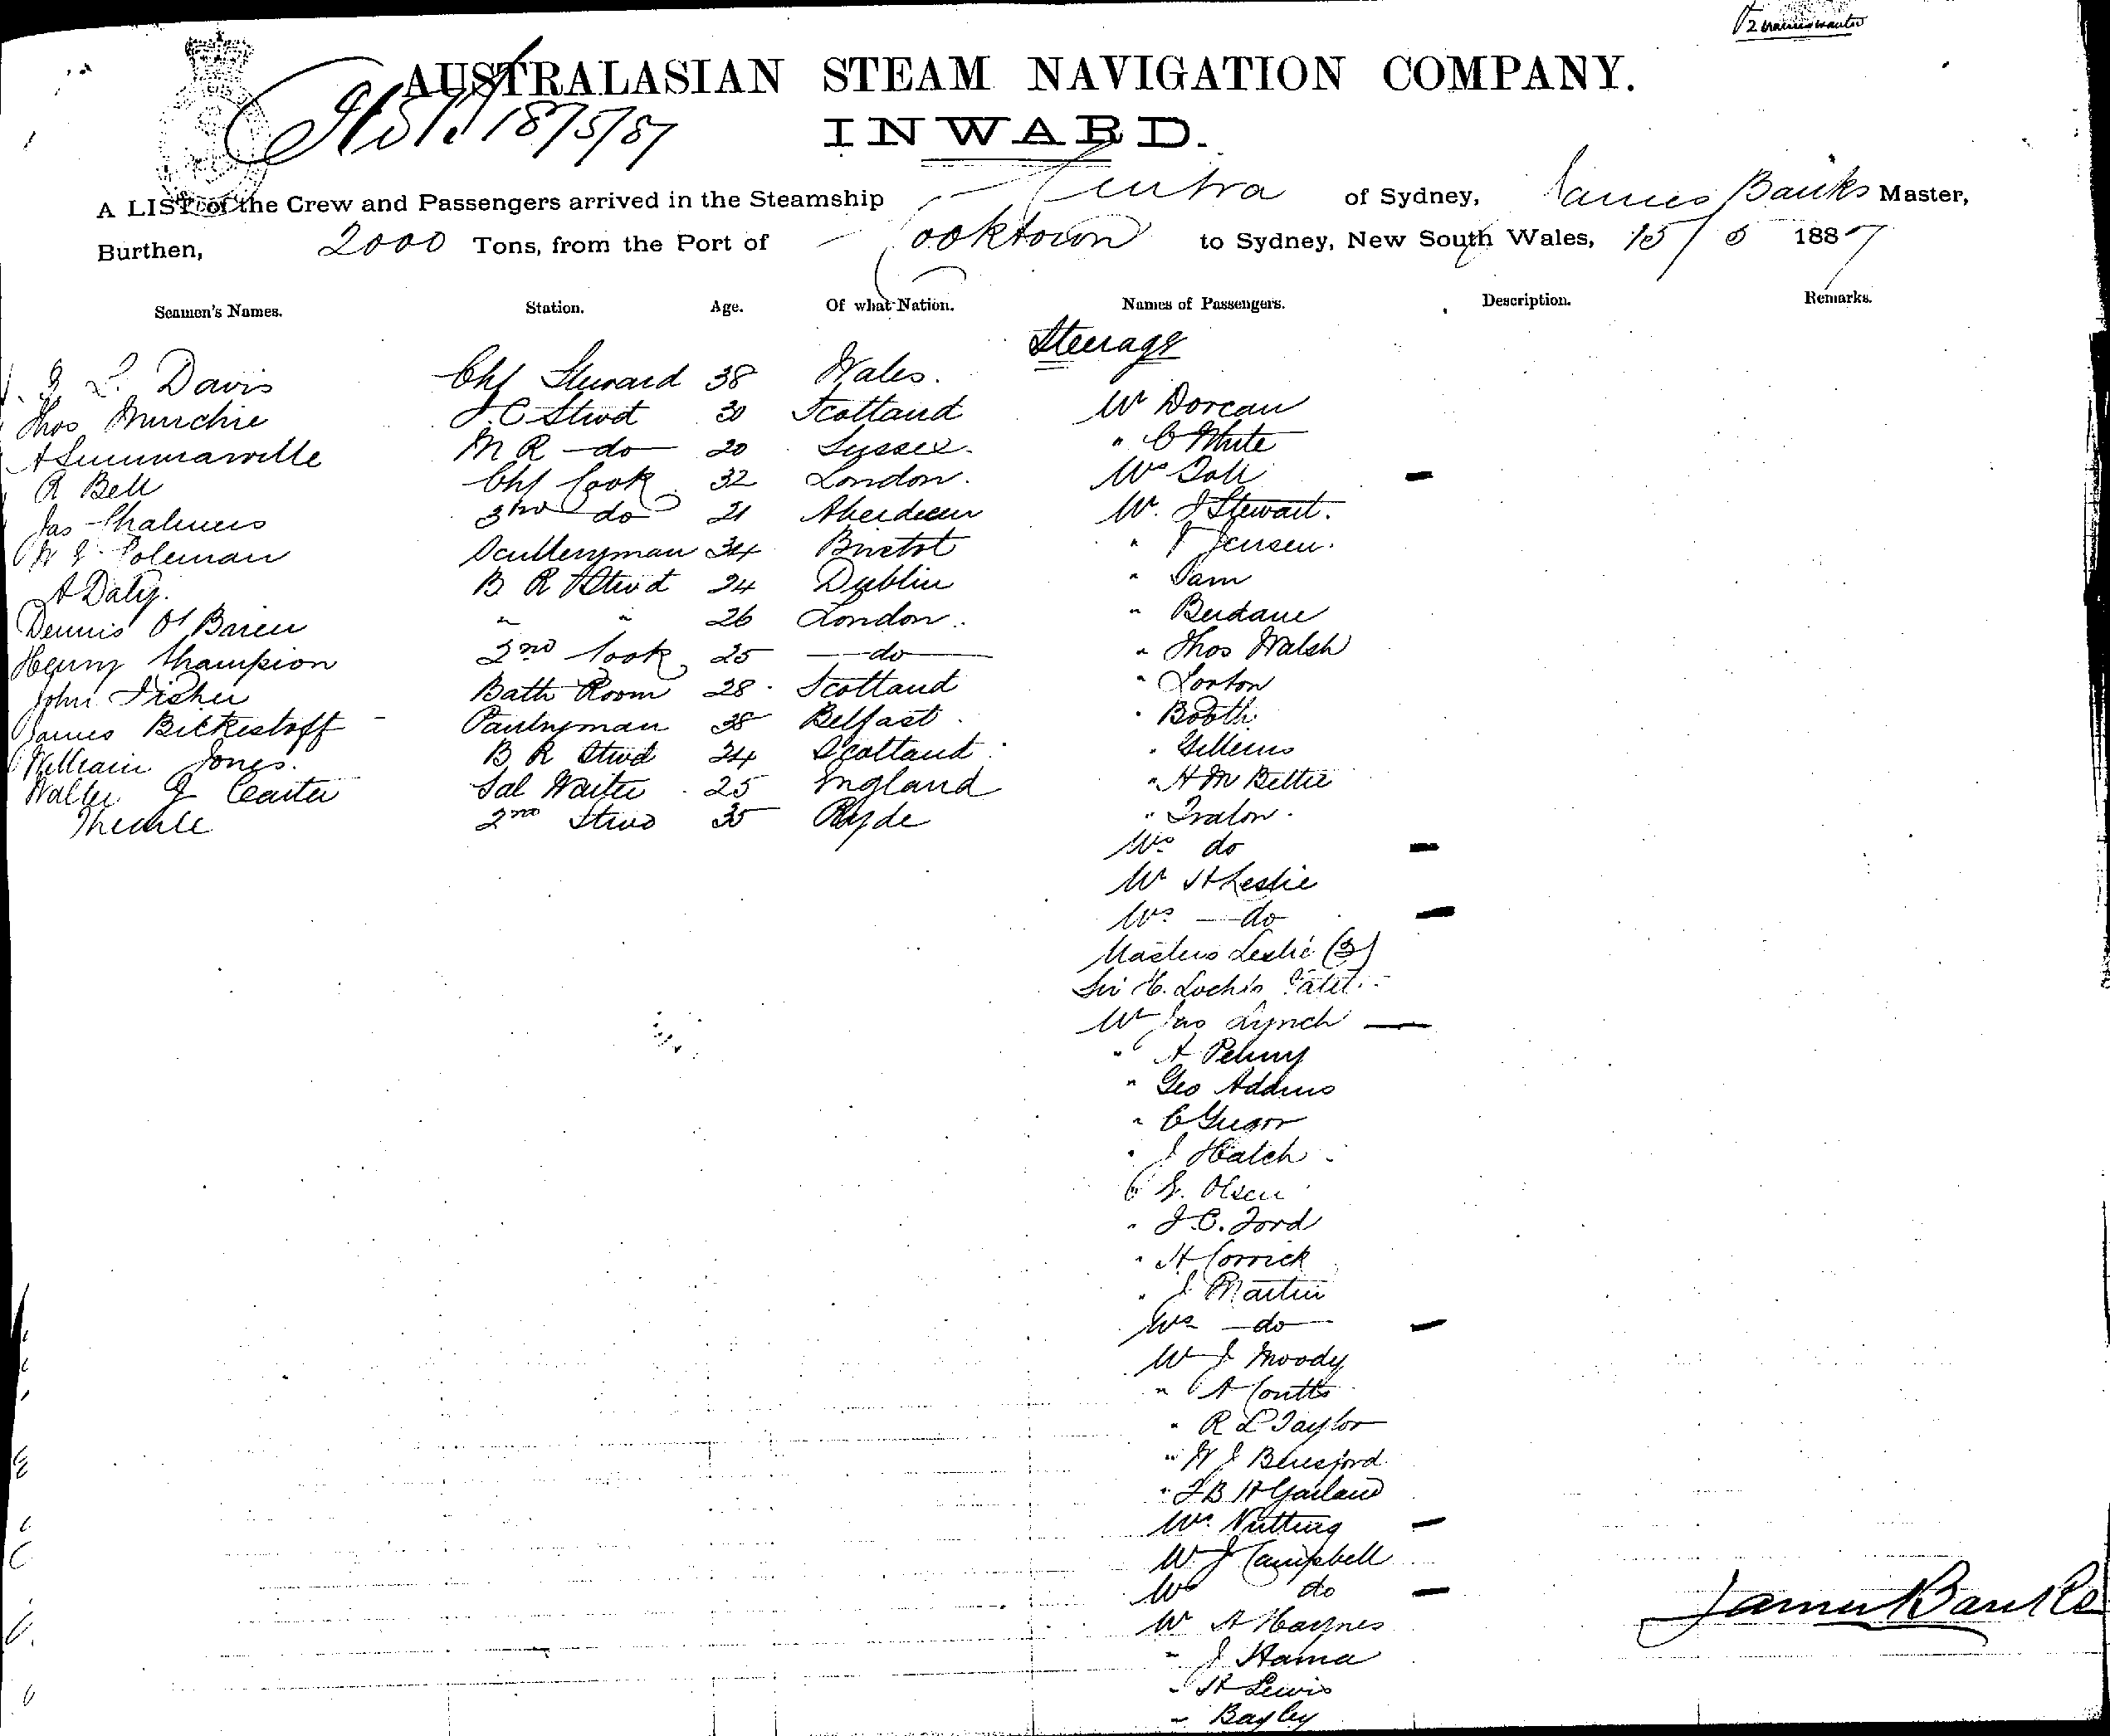 AUSTRALASIAN STEAM NAVIGATION COMPANY.
18/5/87
INWARD.
A LIST of the Crew and Passengers arrived in the Steamship of Sydney, James Banks Master,
Burthen, 2000 Tons, from the Port of Cooktown to Sydney, New South Wales, 15/5 1887
Seamen's Names. Station. Age. Of what Nation. Names of Passengers. Description. Remarks.
Steerage
L. Davis Chf Steward 38 Wales.
Thos Murchie Stwd 30 Scotland Mr Dorcan
A Summarville M R do 20 Sussex. " C White
R Bell Chf Cook 32 London. Mrs Toll —
Jas Chalmers 3rd do 21 Aberdeen Mr. J Stewart.
Coleman Sculleryman 34 Bristol " Jensen.
A Daly. B R Stwd 24 Dublin " Sam
Dennis O'Brien " " 26 London. "
Henry Champion 2nd Cook 25 do " Thos Walsh
John Fisher Bath Room 28 Scotland " Lorton
James Bickestoff Pantryman 38 Belfast " Booth
William Jones. B R Stwd 24 Scotland "
Walter J Carter Sal Waiter 25 England " H M
2nd Stwd 35 Ryde "
Mrs do —
Mr H Leslie
Mrs do —
Masters Leslie (3)
Sir H. Loch's
Mr Jas Lynch —
" A Penny
" Geo Addms
" C Gregor
" J Hatch
" G. Olsen
" J. C. Ford
" H Corrick
" J Martin
Mrs do —
Mr J Moody
" A Coutts
" R L Taylor
" W J Beresford
" F B H Garland
Mrs. Nutting —
Mr J Campbell
Mrs do —
Mr A Haynes
" J Hama
" H Lewis
" Bayley
James Banks